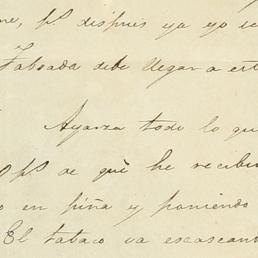 me, ps despues ya yo se
Taboada debe llegar a est
Ayarza todo lo qu
ps de que he recibi
o en piña y poniendo
El tabaco va escaseant